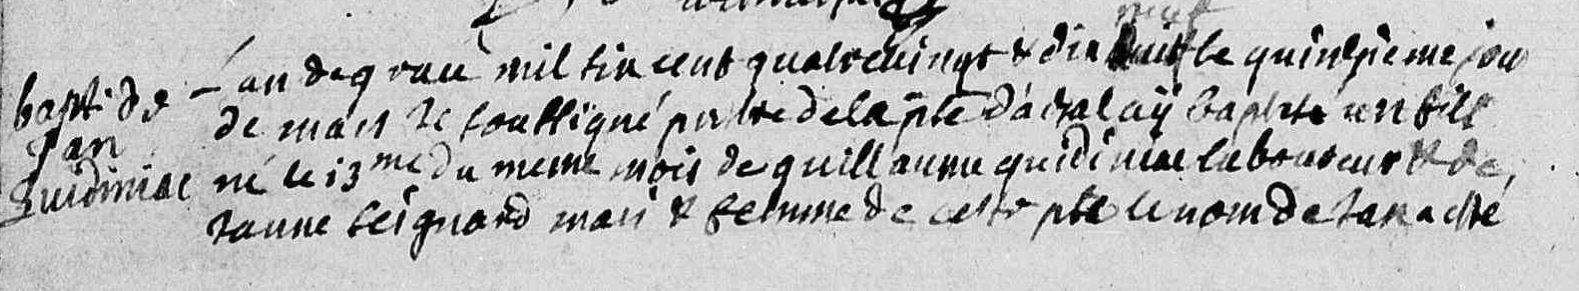 neuf
bapt. de
Jan
Guidiniac
L'an de grace mil six cent quatrevingt & dix huit le quinzieme jour
de mars Je soussigné prbtre de la pte d'a baptisé un fils
né le 13me du meme mois de guillaume guidiniac laboureur & de
Janne seignard mari & femme de cette pte le nom de Jan a esté